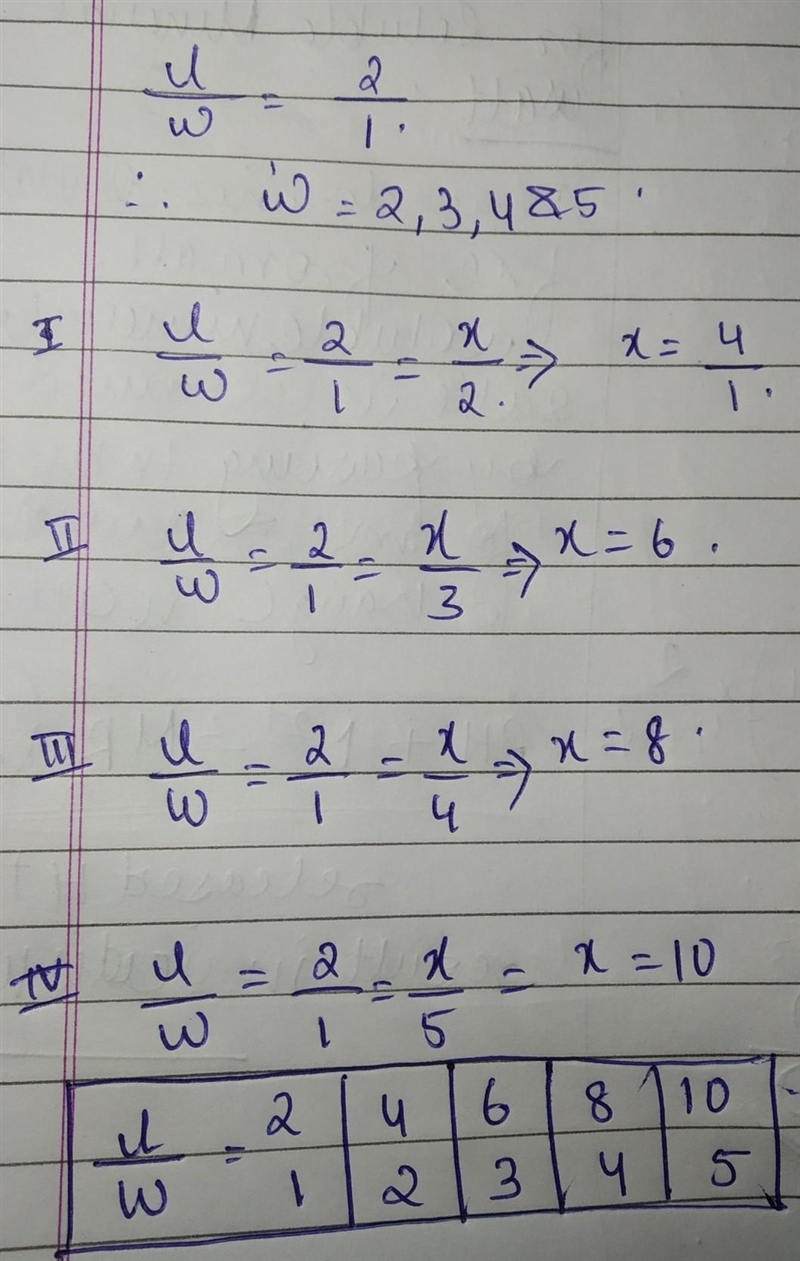 u/w = 2/1.
∴ w = 2, 3, 4 & 5.
I u/w = 2/1 = x/2. ⇒ x = 4/1.
II u/w = 2/1 = x/3 ⇒ x = 6.
III u/w = 2/1 = x/4 ⇒ x = 8.
IV u/w = 2/1 = x/5 = x = 10
u/w = 2/1 | 4/2 | 6/3 | 8/4 | 10/5